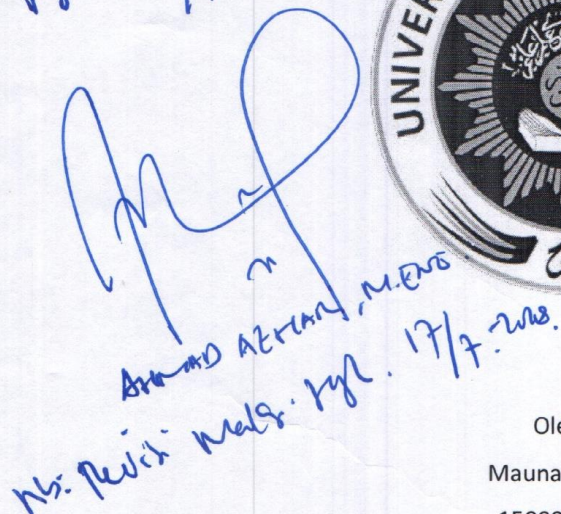 UNIVER
AHMAD AZHARI, M.ENG
Nb: Revisi maks. tgl. 17/7-2018.
Ole
Mauna